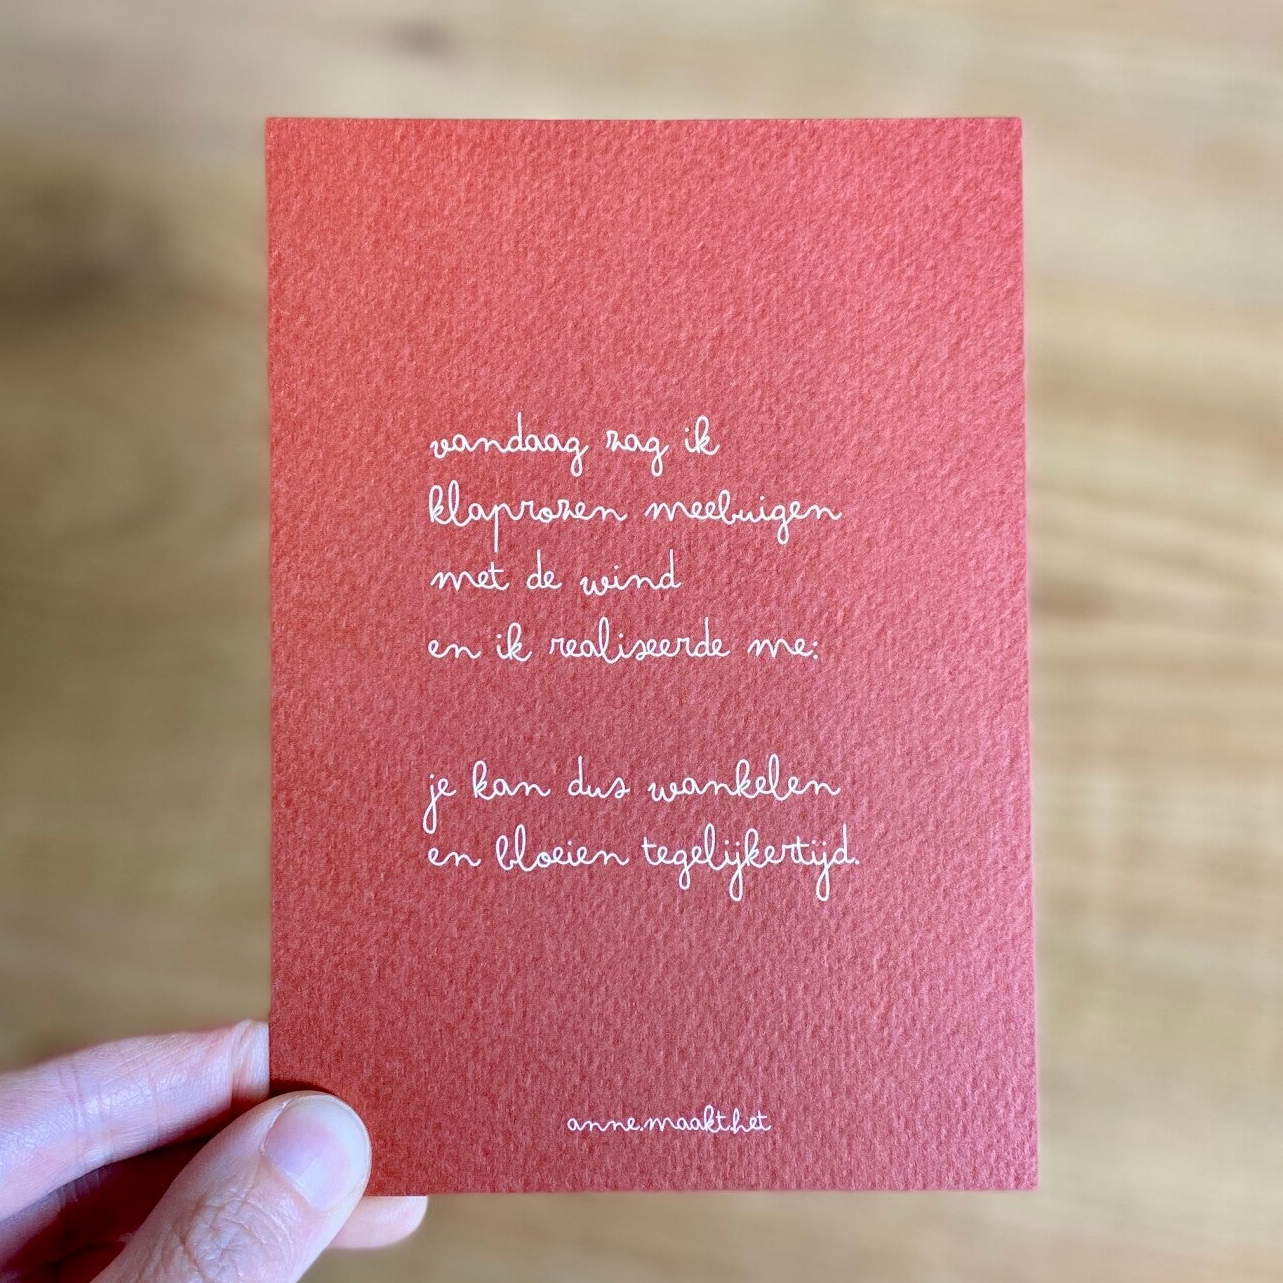 vandaag zag ik
klaprozen meebuigen
met de wind
en ik realiseerde me:
je kan dus wankelen
en bloeien tegelijkertijd.
anne.maakt.het